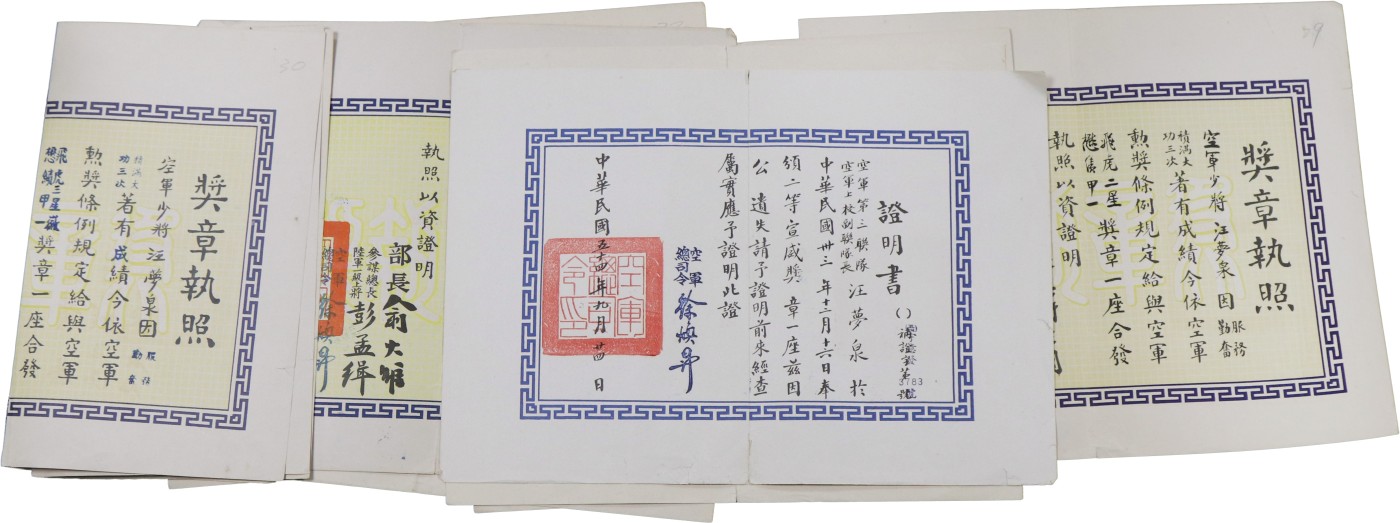 29
獎章執照
空軍少將汪夢泉因服務勤奮
積滿大功三次著有成績今依空軍
勲獎條例規定給與空軍
飛虎二星
獎章一座合發
執照以資證明
證明書
3783
空軍第三聯隊
空軍上校副聯隊長汪夢泉於
中華民國卅三年十二月十六日奉
頒二等宣威獎章一座茲因
公遺失請予證明前來經查
屬實應予證明此證
空軍總司令徐煥昇
中華民國五十四年九月廿四日
空軍總司令印
執照以資證明
部長俞大維
參謀總長
陸軍一級上將彭孟緝
空軍總司令徐煥昇
30
獎章執照
空軍少將汪夢泉因服務勤奮
積滿大功三次著有成績今依
勲獎條例規定給與空軍
飛虎三星
獎章一座合發